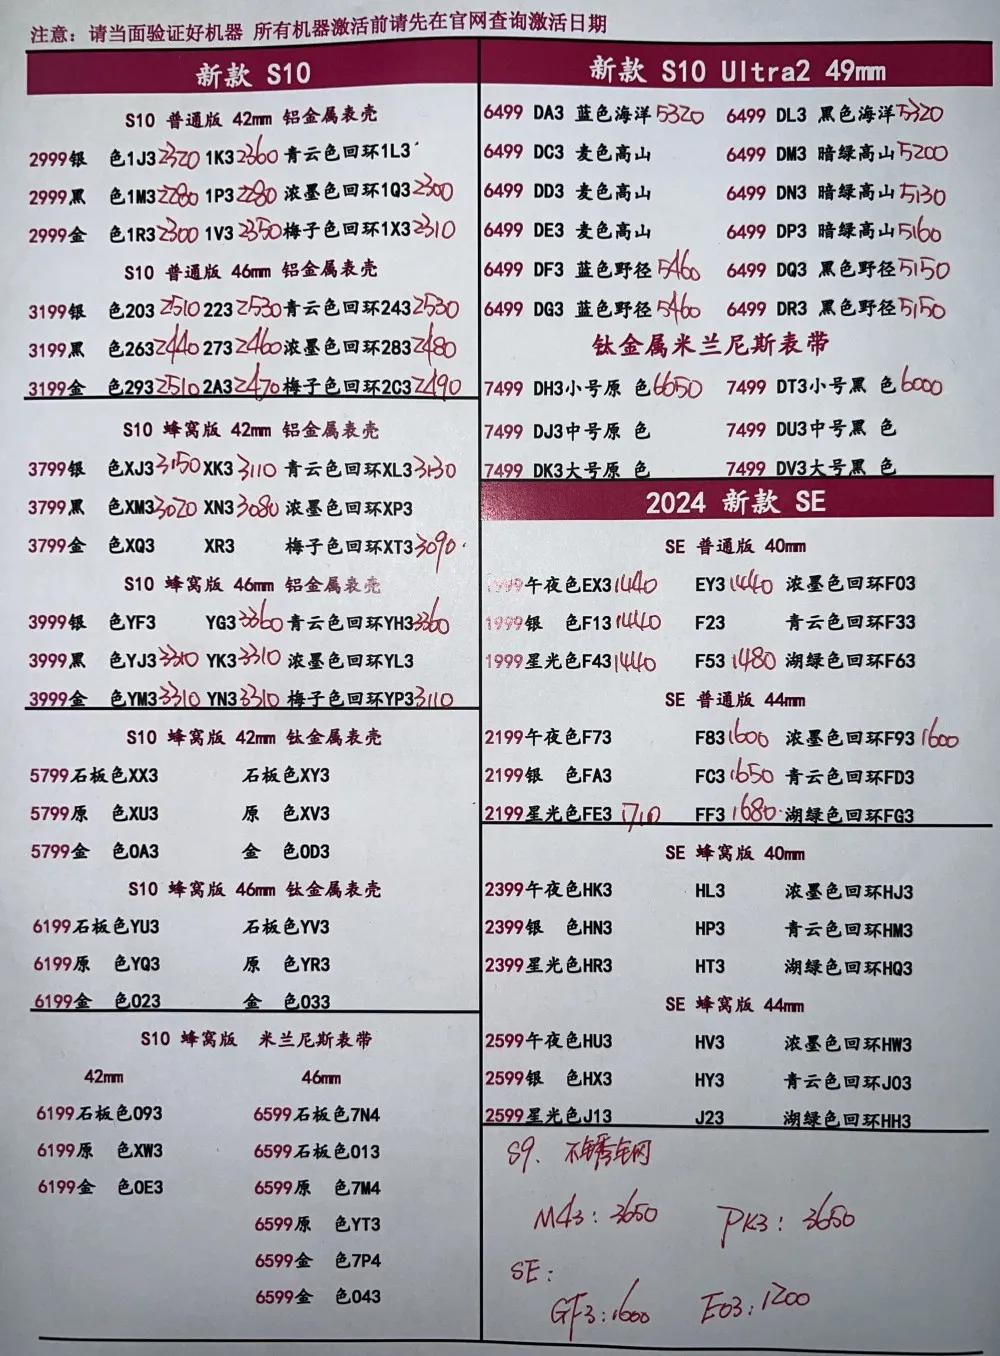 注意：请当面验证好机器 所有机器激活前请先在官网查询激活日期
新款 S10
S10 普通版 42mm 铝合金表壳
2999银 色1J3 2320 1K3 2360 青云色回环1L3
2999黑 色1M3 2280 1P3 2280 浓墨色回环1Q3 2300
2999金 色1R3 2300 1V3 2350 梅子色回环1X3 2310
S10 普通版 46mm 铝金属表壳
3199银 色203 2510 223 2530 青云色回环243 2530
3199黑 色263 2440 273 2460 浓墨色回环283 2480
3199金 色293 2510 2A3 2470 梅子色回环2C3 2490
S10 蜂窝版 42mm 铝金属表壳
3799银 色XJ3 3150 XK3 3110 青云色回环XL3 3130
3799黑 色XM3 3020 XN3 3080 浓墨色回环XP3
3799金 色XQ3 XR3 梅子色回环XT3 3090
S10 蜂窝版 46mm 铝金属表壳
3999银 色YF3 YG3 3360 青云色回环YH3 3360
3999黑 色YJ3 3310 YK3 3310 浓墨色回环YL3
3999金 色YM3 3310 YN3 3310 梅子色回环YP3 3110
S10 蜂窝版 42mm 钛金属表壳
5799石板色XX3 石板色XY3
5799原 色XU3 原 色XV3
5799金 色0A3 金 色0D3
S10 蜂窝版 46mm 钛金属表壳
6199石板色YU3 石板色YV3
6199原 色YQ3 原 色YR3
6199金 色023 金 色033
S10 蜂窝版 米兰尼斯表带
42mm 46mm
6199石板色093 6599石板色7N4
6199原 色XW3 6599石板色013
6199金 色0E3 6599原 色7M4
6599原 色YT3
6599金 色7P4
6599金 色043
新款 S10 Ultra2 49mm
6499 DA3 蓝色海洋 5320 6499 DL3 黑色海洋 5320
6499 DC3 麦色高山 6499 DM3 暗绿高山 5200
6499 DD3 麦色高山 6499 DN3 暗绿高山 5130
6499 DE3 麦色高山 6499 DP3 暗绿高山 5160
6499 DF3 蓝色野径 5460 6499 DQ3 黑色野径 5150
6499 DG3 蓝色野径 5460 6499 DR3 黑色野径 5150
钛金属米兰尼斯表带
7499 DH3小号原 色 6650 7499 DT3小号黑 色 6000
7499 DJ3中号原 色 7499 DU3中号黑 色
7499 DK3大号原 色 7499 DV3大号黑 色
2024 新款 SE
SE 普通版 40mm
1999午夜色EX3 1440 EY3 1440 浓墨色回环F03
1999银 色F13 1440 F23 青云色回环F33
1999星光色F43 1440 F53 1480 湖绿色回环F63
SE 普通版 44mm
2199午夜色F73 F83 1600 浓墨色回环F93 1600
2199银 色FA3 FC3 1650 青云色回环FD3
2199星光色FE3 1710 FF3 1680 湖绿色回环FG3
SE 蜂窝版 40mm
2399午夜色HK3 HL3 浓墨色回环HJ3
2399银 色HN3 HP3 青云色回环HM3
2399星光色HR3 HT3 湖绿色回环HQ3
SE 蜂窝版 44mm
2599午夜色HU3 HV3 浓墨色回环HW3
2599银 色HX3 HY3 青云色回环J03
2599星光色J13 J23 湖绿色回环HH3
S9. 不锈钢
M43：3650 PK3：3650
SE：
GF3：1600 E03：1200